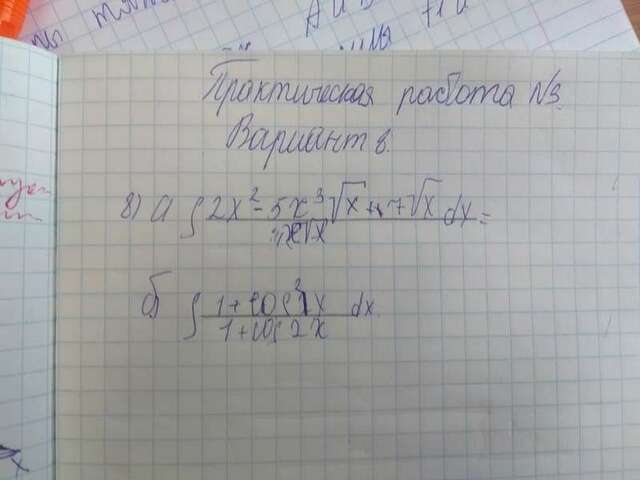 Практическая работа №3.
Вариант 8.
8) а ∫ 2x² - 5x³√x + 7√x dx =
x√x
б) ∫ 1 + cos²x dx.
1 + cos 2x